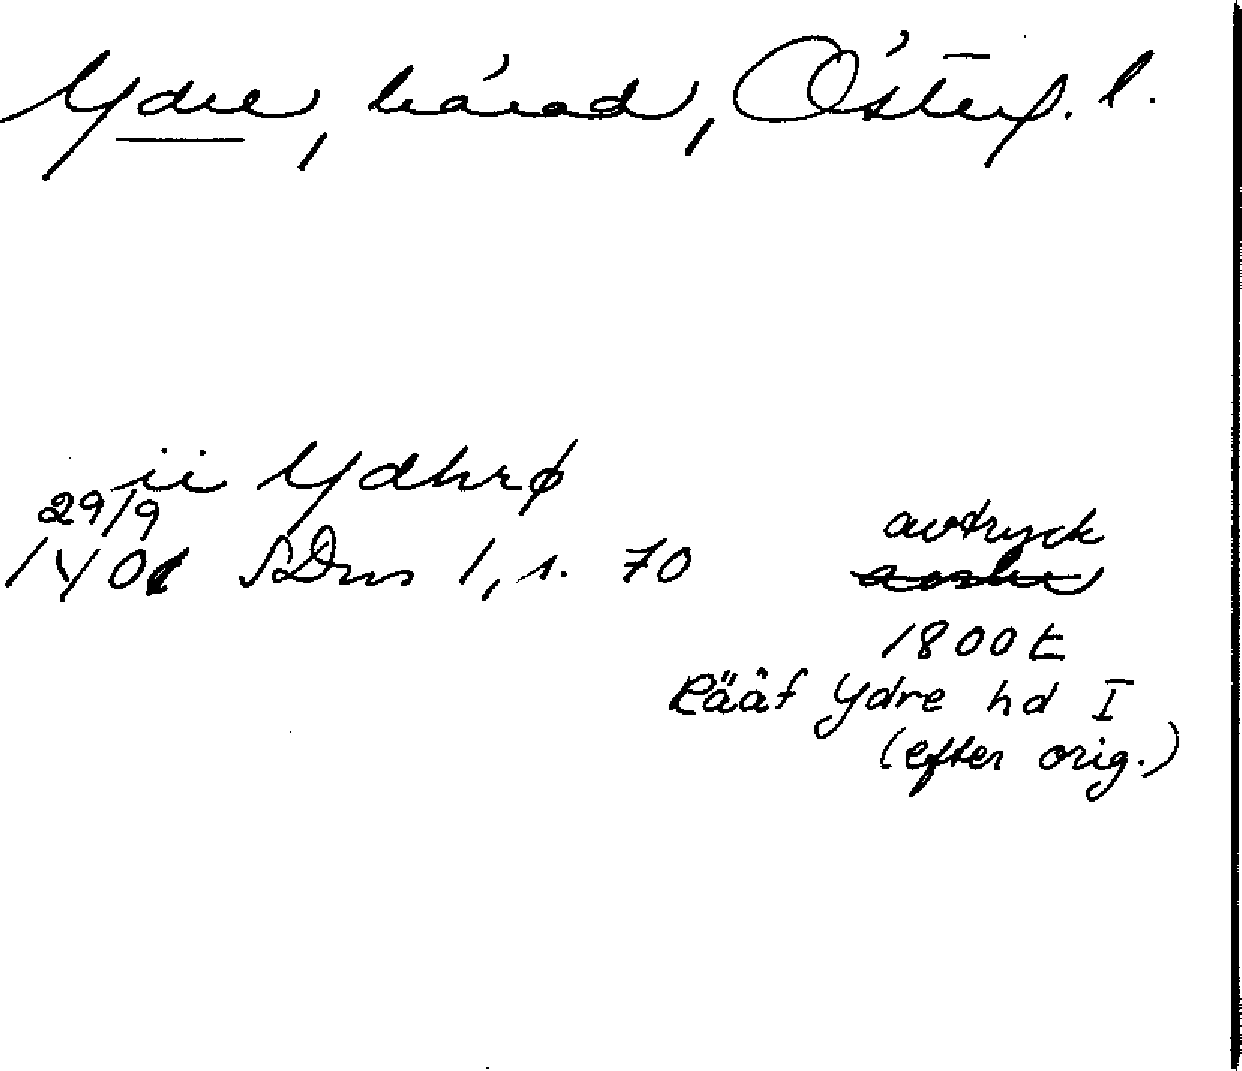 Ydre, härad, Östergl. l.
ii Ydhrø
29/9
1401 SDns 1, s. 70
avtryck
1800 t
Rääf Ydre hd I
(efter orig.)